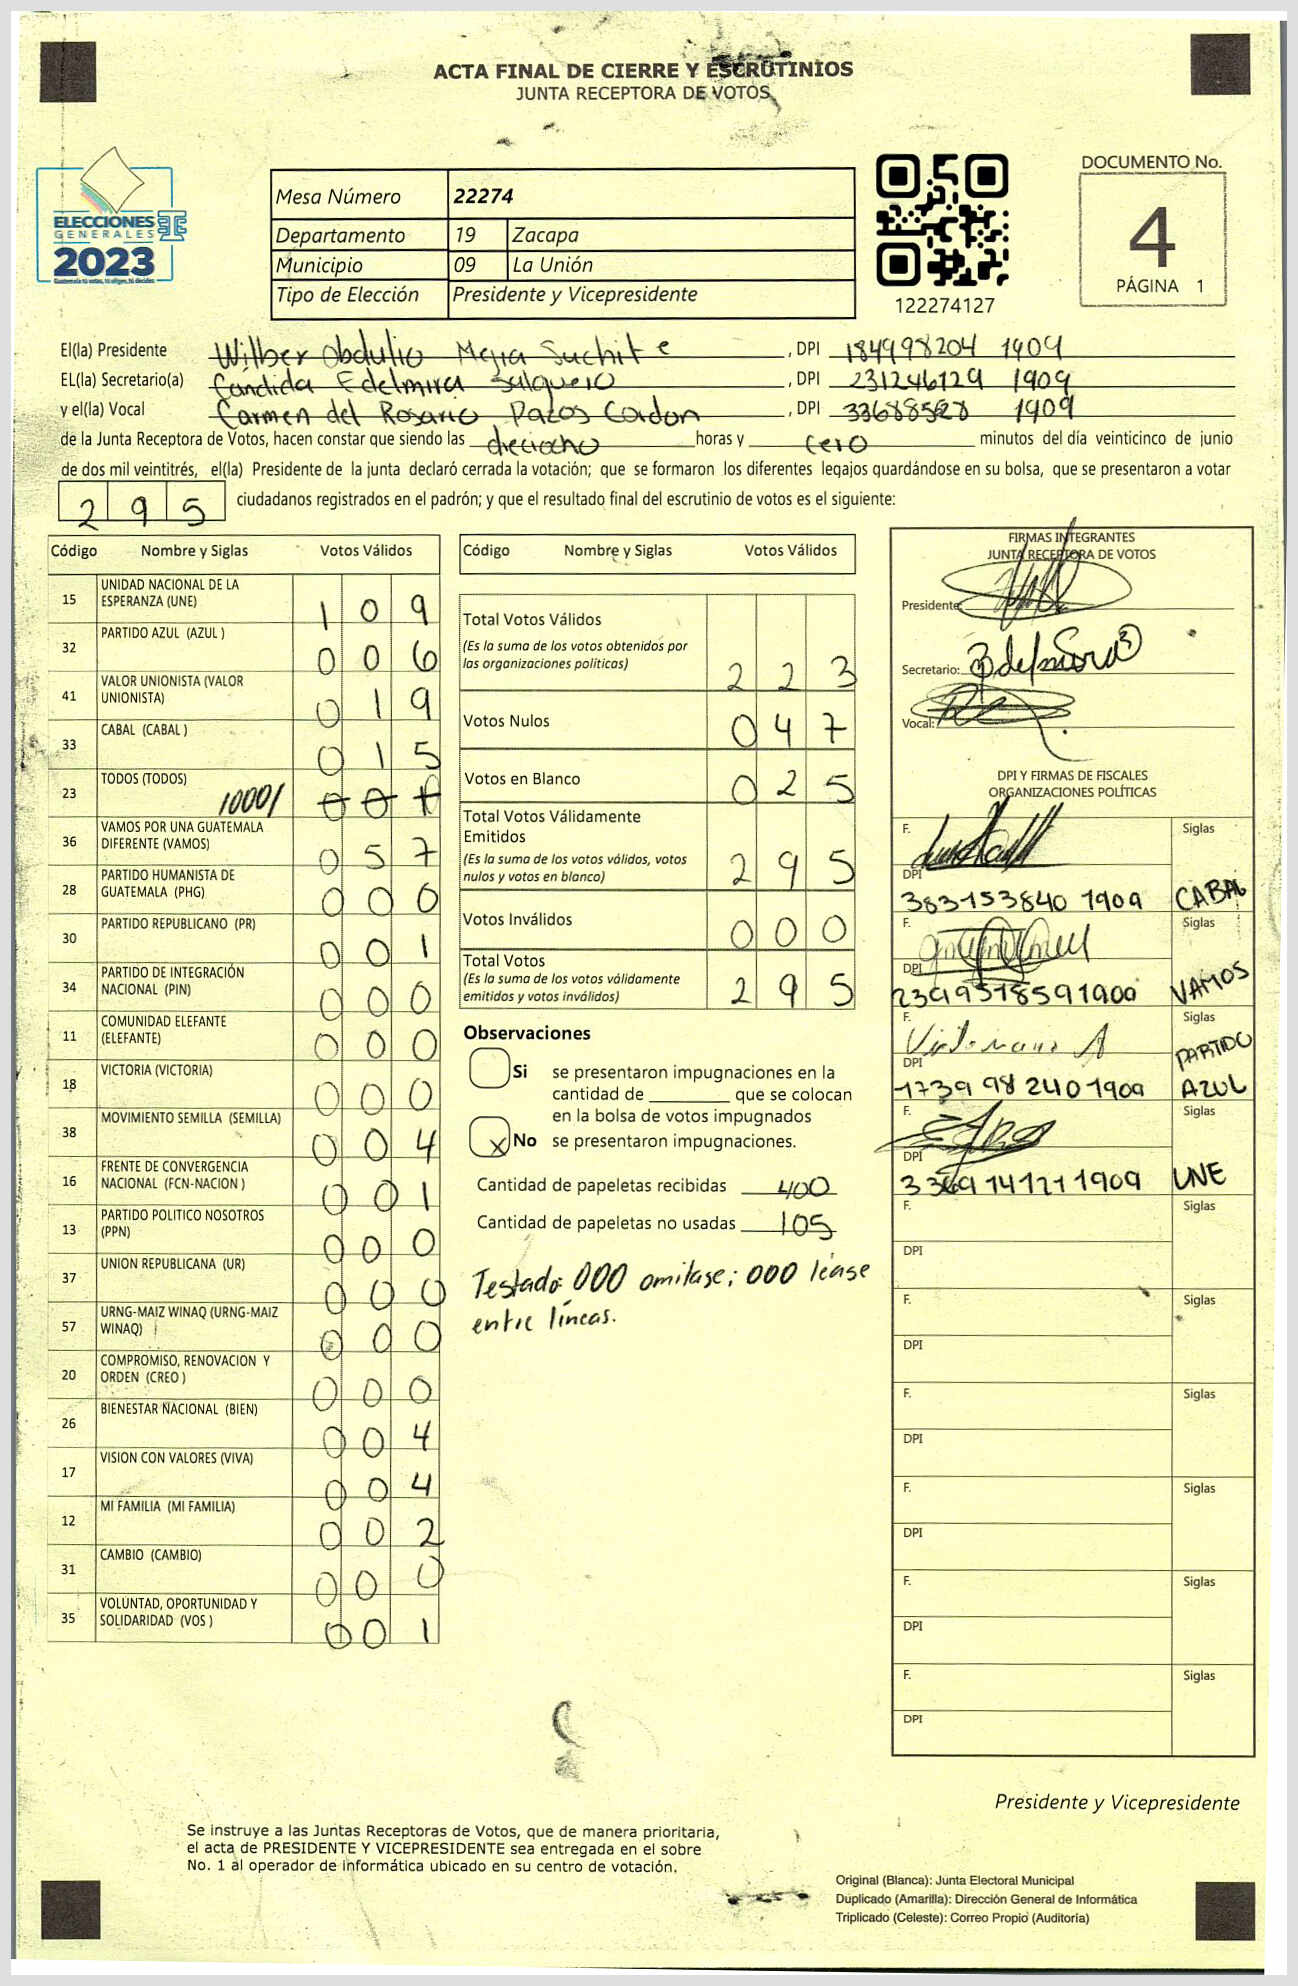 ACTA FINAL DE CIERRE Y ESCRUTINIOS
JUNTA RECEPTORA DE VOTOS
ELECCIONES
GENERALES
2023
Mesa Número 22274
Departamento 19 Zacapa
Municipio 09 La Unión
Tipo de Elección Presidente y Vicepresidente
122274127
DOCUMENTO No.
4
PÁGINA 1
El(la) Presidente Wilber Obdulio Mejia Suchite, DPI 184998204 1909
EL(la) Secretario(a) Cándida Edelmira Salguero, DPI 231246129 1909
y el(la) Vocal Carmen del Rosario Pazos Cordon, DPI 33688528 1909
de la Junta Receptora de Votos, hacen constar que siendo las dieciocho horas y cero minutos del día veinticinco de junio
de dos mil veintitrés, el(la) Presidente de la junta declaró cerrada la votación; que se formaron los diferentes legajos guardándose en su bolsa, que se presentaron a votar
295 ciudadanos registrados en el padrón; y que el resultado final del escrutinio de votos es el siguiente:
Código Nombre y Siglas Votos Válidos
15 UNIDAD NACIONAL DE LA ESPERANZA (UNE) 109
32 PARTIDO AZUL (AZUL ) 006
41 VALOR UNIONISTA (VALOR UNIONISTA) 019
33 CABAL (CABAL ) 015
23 TODOS (TODOS)
36 VAMOS POR UNA GUATEMALA DIFERENTE (VAMOS) 057
28 PARTIDO HUMANISTA DE GUATEMALA (PHG) 000
30 PARTIDO REPUBLICANO (PR) 001
34 PARTIDO DE INTEGRACIÓN NACIONAL (PIN) 000
11 COMUNIDAD ELEFANTE (ELEFANTE) 000
18 VICTORIA (VICTORIA) 000
38 MOVIMIENTO SEMILLA (SEMILLA) 004
16 FRENTE DE CONVERGENCIA NACIONAL (FCN-NACION ) 001
13 PARTIDO POLITICO NOSOTROS (PPN) 000
37 UNION REPUBLICANA (UR) 000
57 URNG-MAIZ WINAQ (URNG-MAIZ WINAQ) 000
20 COMPROMISO, RENOVACION Y ORDEN (CREO ) 000
26 BIENESTAR NACIONAL (BIEN) 004
17 VISION CON VALORES (VIVA) 004
12 MI FAMILIA (MI FAMILIA) 002
31 CAMBIO (CAMBIO) 000
35 VOLUNTAD, OPORTUNIDAD Y SOLIDARIDAD (VOS ) 001
Código Nombre y Siglas Votos Válidos
Total Votos Válidos
(Es la suma de los votos obtenidos por
las organizaciones politicas) 223
Votos Nulos 047
Votos en Blanco 025
Total Votos Válidamente
Emitidos
(Es la suma de los votos válidos, votos
nulos y votos en blanco) 295
Votos Inválidos 000
Total Votos
(Es la suma de los votos válidamente
emitidos y votos inválidos) 295
Observaciones
Si se presentaron impugnaciones en la
cantidad de ________ que se colocan
en la bolsa de votos impugnados
x No se presentaron impugnaciones.
Cantidad de papeletas recibidas 400
Cantidad de papeletas no usadas 105
Testado: 000 omitase; 000 léase
entre líneas.
FIRMAS INTEGRANTES
JUNTA RECEPTORA DE VOTOS
Presidente:
Secretario:
Vocal:
DPI Y FIRMAS DE FISCALES
ORGANIZACIONES POLÍTICAS
F. Siglas
DPI
383153840 1909 CABAL
F. Siglas
DPI
239951859 1900 VAMOS
F. Siglas
DPI
1739 98 240 1909 PARTIDO AZUL
F. Siglas
DPI
3369 14121 1909 UNE
F. Siglas
DPI
F. Siglas
DPI
F. Siglas
DPI
F. Siglas
DPI
F. Siglas
DPI
F. Siglas
DPI
Presidente y Vicepresidente
Se instruye a las Juntas Receptoras de Votos, que de manera prioritaria,
el acta de PRESIDENTE Y VICEPRESIDENTE sea entregada en el sobre
No. 1 al operador de informática ubicado en su centro de votación.
Original (Blanca): Junta Electoral Municipal
Duplicado (Amarilla): Dirección General de Informática
Triplicado (Celeste): Correo Propio (Auditoría)